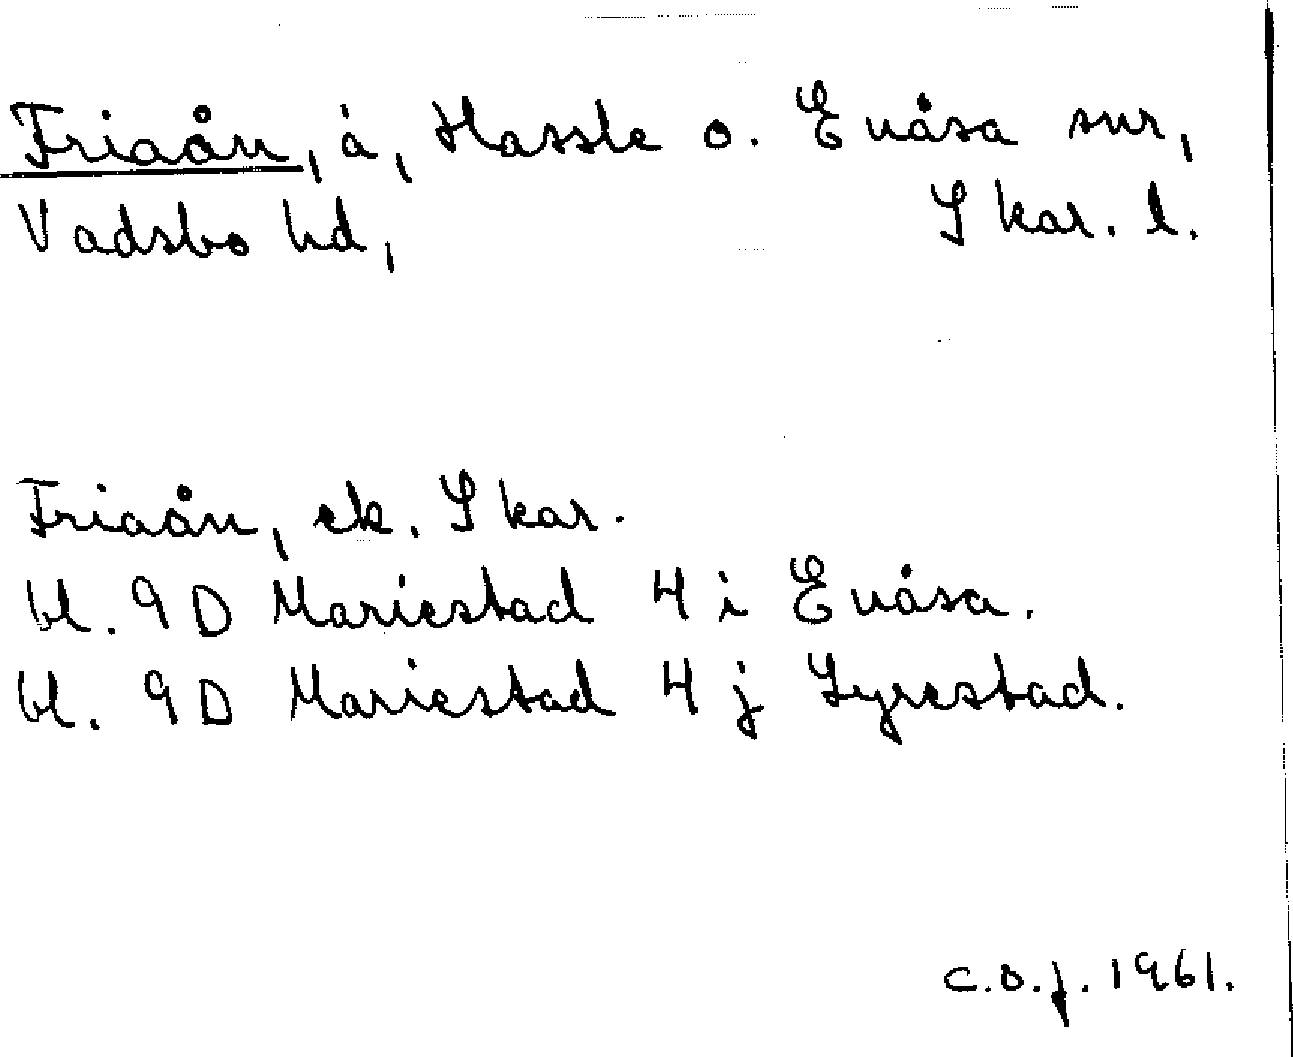 Friaån, å, Hassle o. Enåsa snr,
Vadsbo hd, Skar. l.
Friaån, ek. Skar.
bl. 9D Mariestad 4 i Enåsa.
bl. 9D Mariestad 4 j Lyrestad.
C.O.f. 1961.